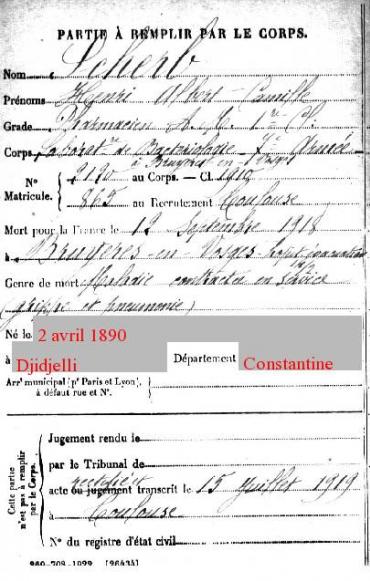 PARTIE À REMPLIR PAR LE CORPS.
Nom Scherb
Prénoms Henri Albert Camille
Grade Pharmacien A. M. 1re Cl.
Corps Laboratre de Bactériologie 7e Armée
à Bruyères en Vosges
No Matricule. { 9190 au Corps. — Cl. 1910
865 au Recrutement Toulouse
Mort pour la France le 12 Septembre 1918
à Bruyères-en-Vosges hôpit évacuation
Genre de mort Maladie contractée en service
(grippe et pneumonie)
Né le 2 avril 1890
à Djidjelli Département Constantine
Arrt municipal (pr Paris et Lyon),
à défaut rue et No.
Cette partie n'est pas à remplir par le Corps.
Jugement rendu le
par le Tribunal de
rectificatif
acte ou jugement transcrit le 15 juillet 1919
à Toulouse
No du registre d'état civil